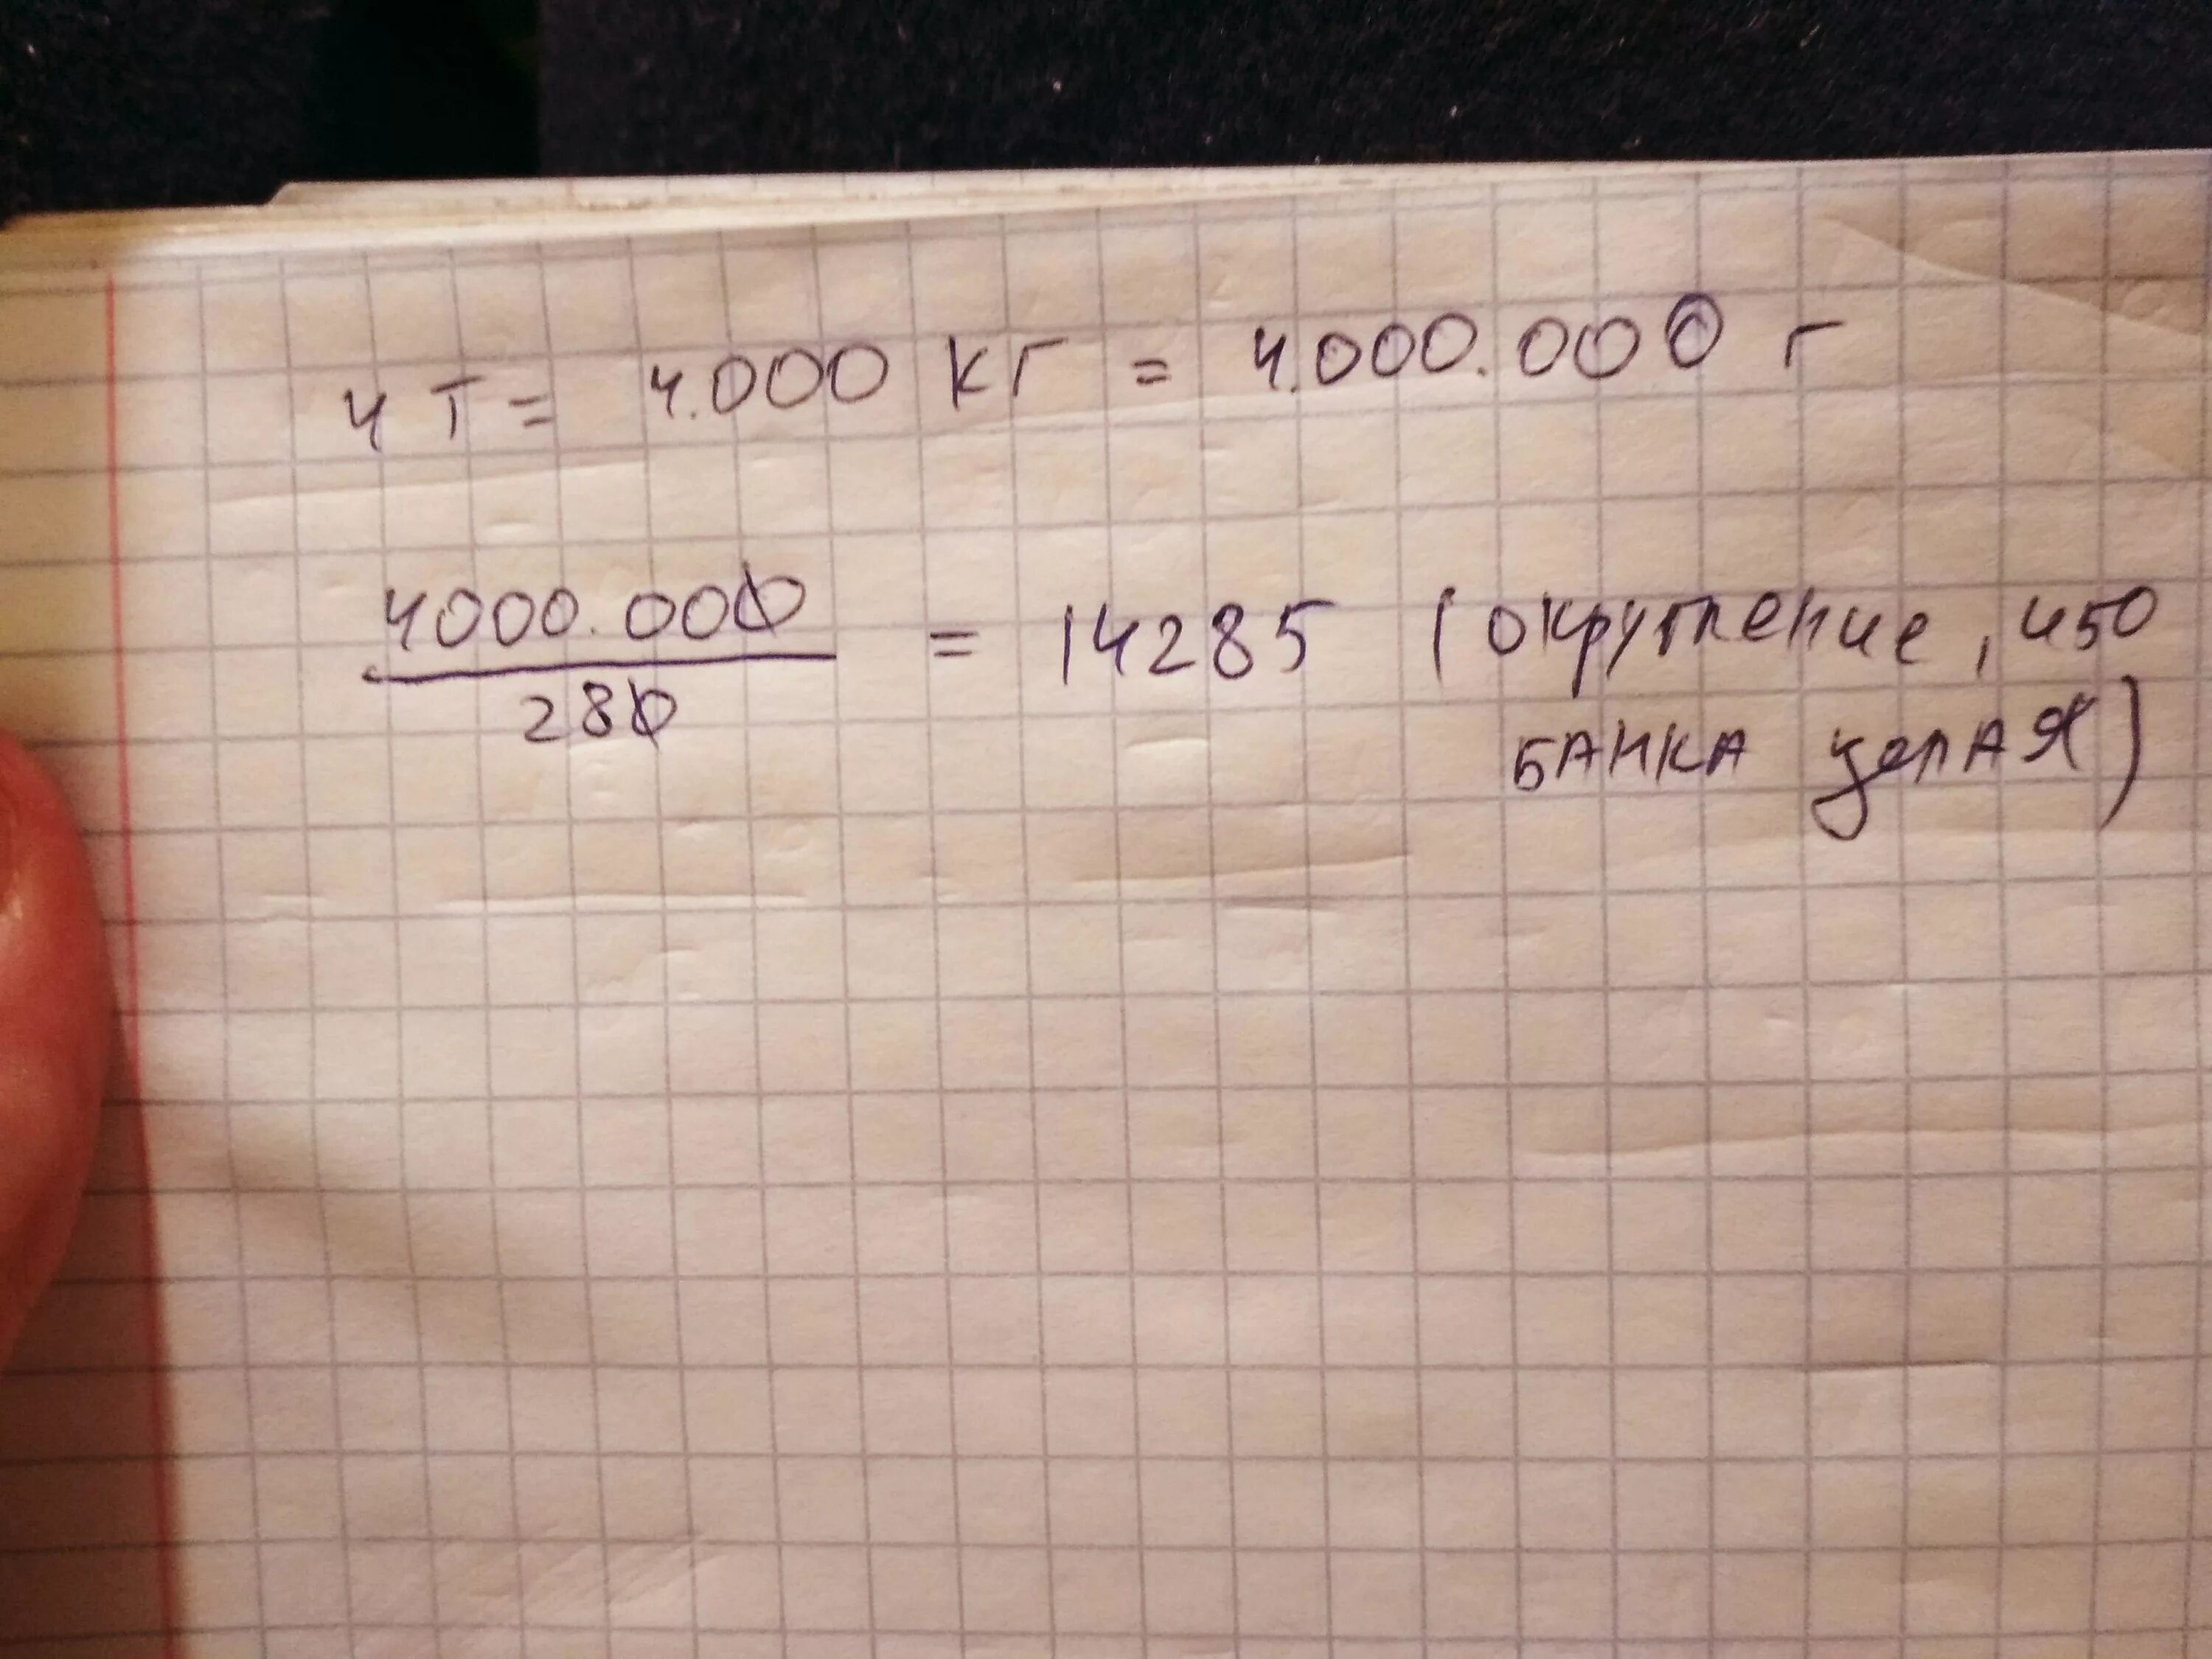 4 Т = 4.000 КГ = 4.000.000 г
4000.000
280
= 14285 (округление, чтоб
БАНКА целАЯ)